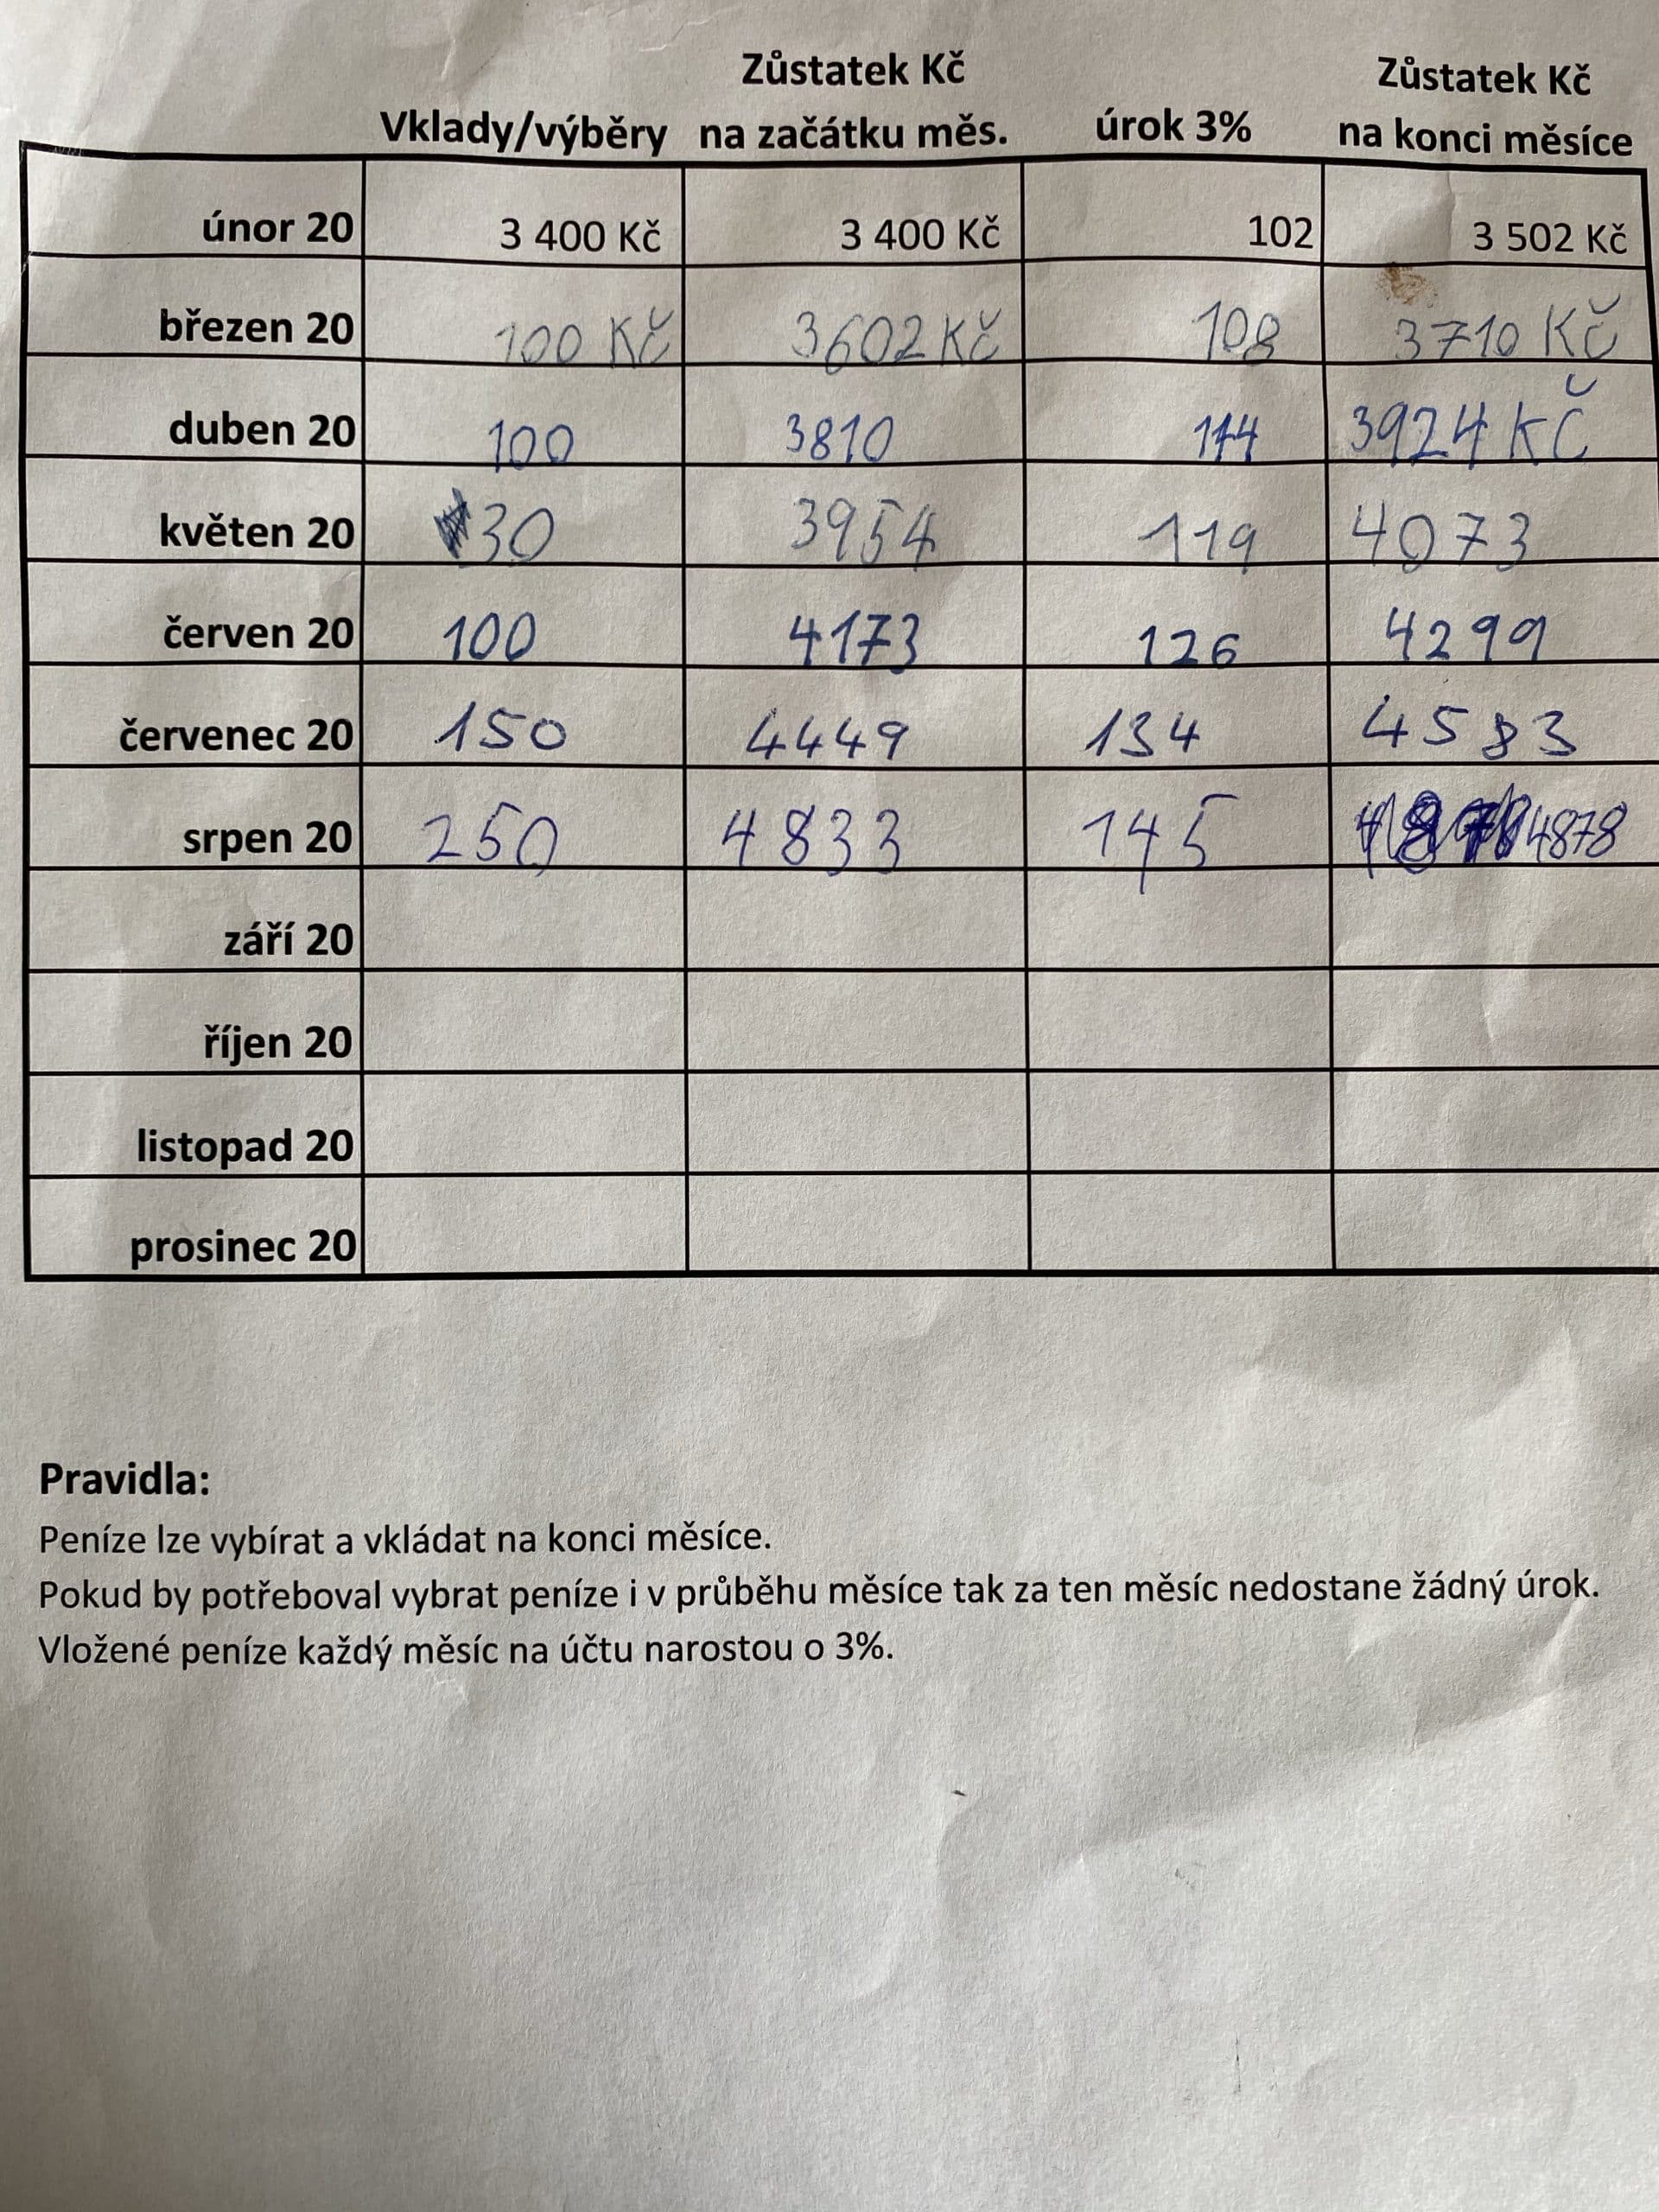 Zůstatek Kč Zůstatek Kč
Vklady/výběry na začátku měs. úrok 3% na konci měsíce
únor 20 3 400 Kč 3 400 Kč 102 3 502 Kč
březen 20 100 Kč 3602 Kč 108 3710 Kč
duben 20 100 3810 114 3924 KČ
květen 20 30 3954 119 4073
červen 20 100 4173 126 4299
červenec 20 150 4449 134 4583
srpen 20 250 4833 145 4878
září 20
říjen 20
listopad 20
prosinec 20
Pravidla:
Peníze lze vybírat a vkládat na konci měsíce.
Pokud by potřeboval vybrat peníze i v průběhu měsíce tak za ten měsíc nedostane žádný úrok.
Vložené peníze každý měsíc na účtu narostou o 3%.